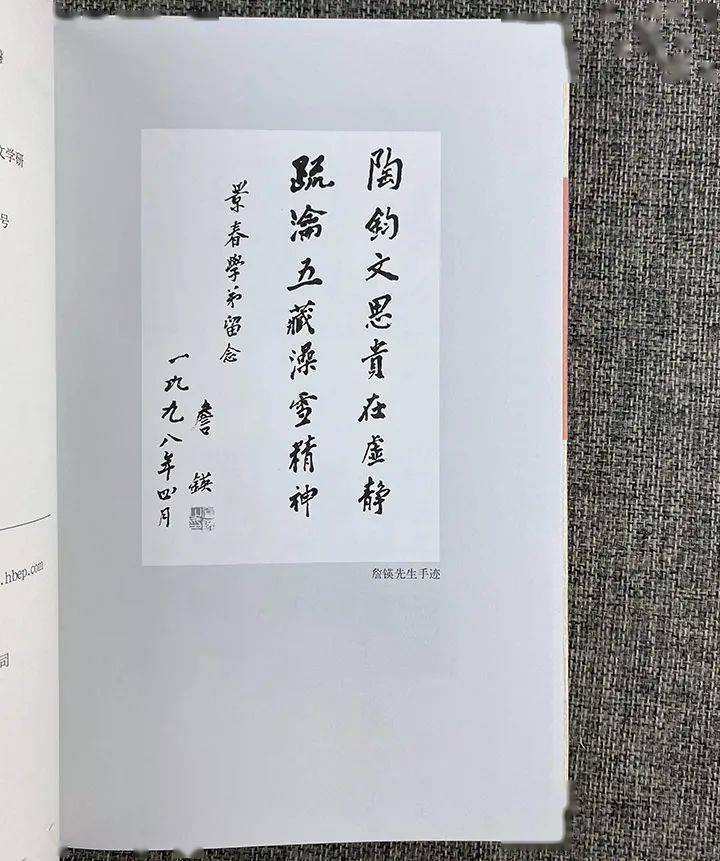 陶鈞文思貴在虛静
疏瀹五藏澡雪精神
景春學弟留念
詹鍈
一九九八年四月
詹锳先生手迹
文学研
号
.hbep.com
司